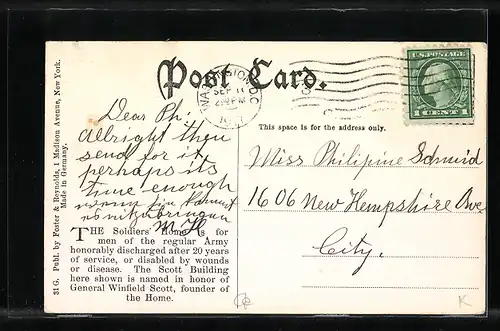 Post Card.
WASHINGTON, D.C.
SEP 11
PM
U.S. POSTAGE
1 CENT 1
This space is for the address only.
31 G. Publ. by Foster & Reynolds, 1 Madison Avenue, New York.
Made in Germany.
Dear Ph.
Allright then
send for it,
perhaps its
time enough
wenn Du kannst
es mitzubringen
M H
THE Soldiers' Home is for
men of the regular Army
honorably discharged after 20 years
of service, or disabled by wounds
or disease. The Scott Building
here shown is named in honor of
General Winfield Scott, founder of
the Home.
Miss Philipine Schmid
1606 New Hampshire Ave.
City.
K